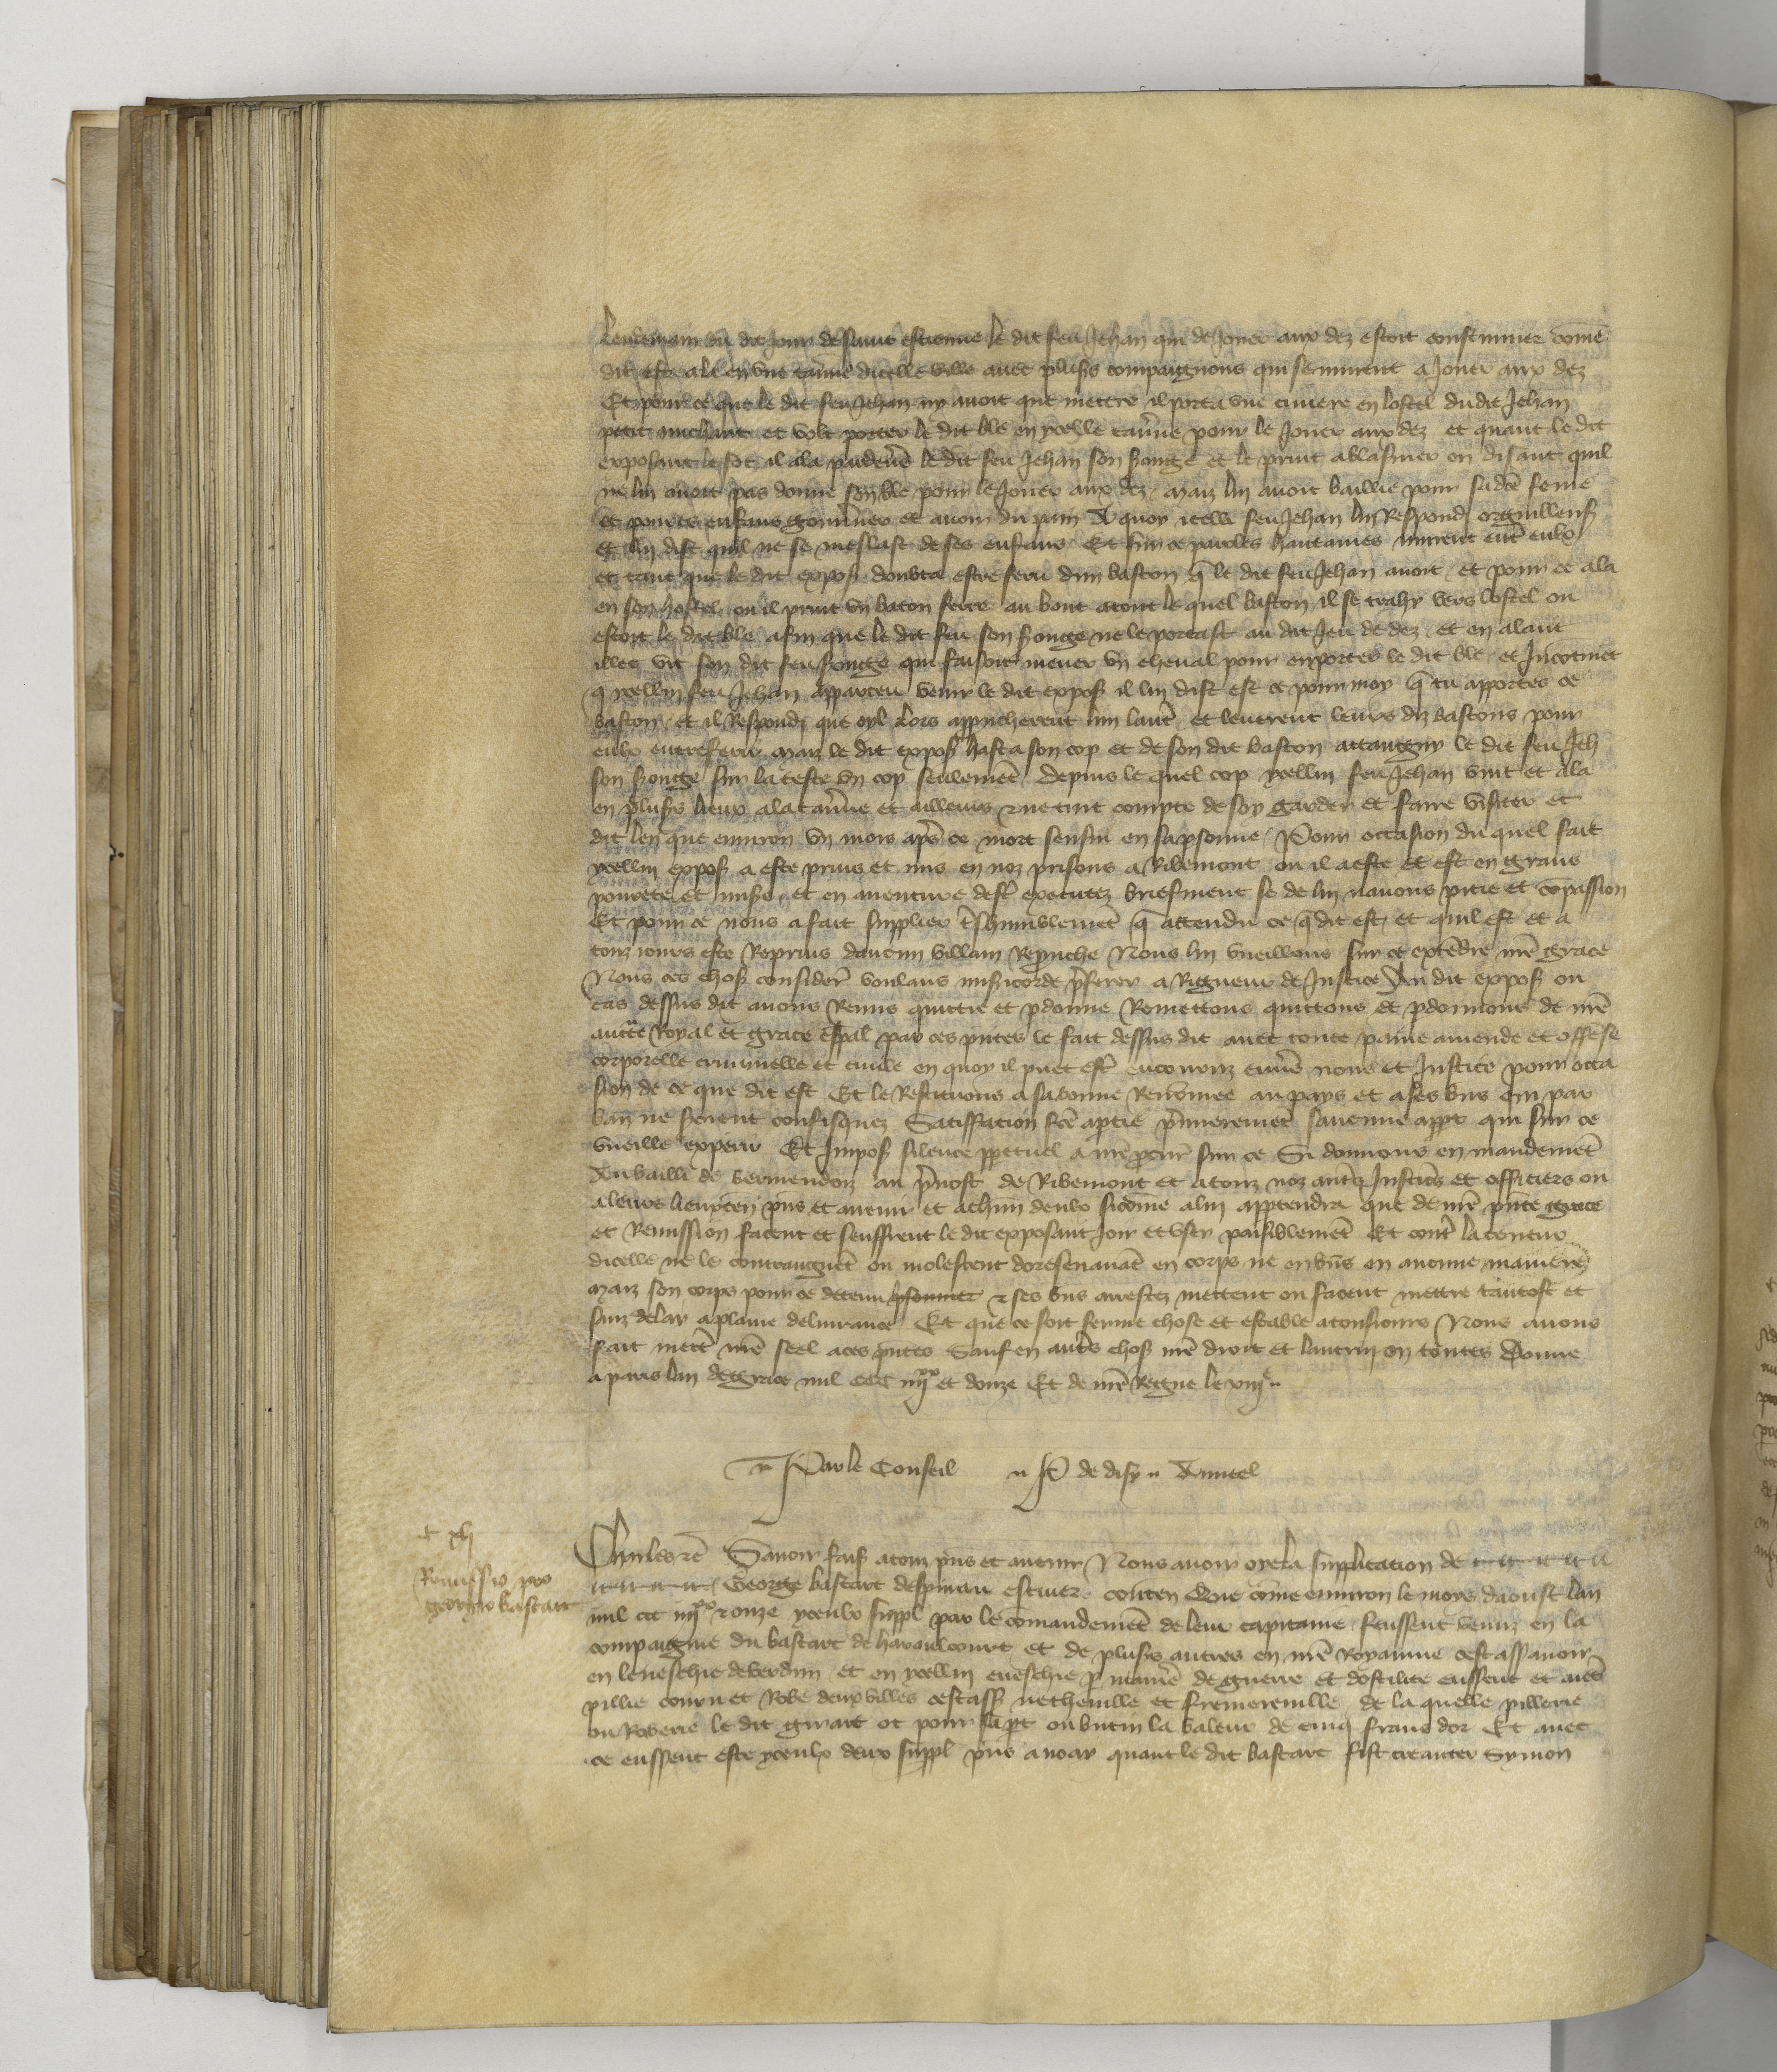 Lendemain du dit jour de saint estienne le dit feu Jehan qui de Jouer aux dez estoit coustumier come
dit est ala en une tav̄ne dicelle ville avec plus̄s compaignons qui se mirent a Jouer aux dez
Et pour ce que le dit feu Jehan ny avoit que mettre il porta une civiere en lostel dudit Jehan
petit et volt porter le dit ble en ycelle tav̄ne pour le Jouer aux dez et quant le dit
exposant le sot il ala le dit feu Jehan son et le print a blasmer en disant quil
ne lui avoit pas donne son ble pour le Jouer aux dez maiz lui avoit baillie pour sa dcē feme
et pour ses enfans gouv̄ner et avoir du pain A quoy icellui feu Jehan lui Respondi orguilleus̄
et lui dist quil ne se meslast de ses enfans Et sur ce paroles hautaines murent ent̄ eulx
et tant que le dit expos̄ doubta estre feru dun baston q̄ le dit feu Jehan avoit et pour ce ala
en son hostel ou il print un baton ferre au bout atout le quel baston il se trahy vers lostel ou
estoit le dit ble afin que le dit feu son ne le portast au dit Jeu de dez et en alant
illec vit son dit feu qui faisoit mener un cheval pour enporter le dit ble et Incotinēt
q̄ ycellui feu Jehan apparceu venir le dit expos̄ il lui dist est ce pour moy q̄ tu apportes ce
baston et il Respondi que oyl Lors approcherent lun laut̄e et leverent leurs diz bastons pour
eulx entreferir maiz le dit expos̄ hasta son cop et de son dit baston attaigny le dit feu Jeh
son sur la teste un cop seulemēt depuis le quel cop ycellui feu Jehan vint et ala
en plus̄s lieux a la tav̄ne et ailleurs & ne tint compte de soy garder et faire visiter et
dit len que environ un mois ap̄s ce mort sensui en sa p̄sonne Pour occasion du quel fait
ycellui expos̄ a este prins et mis en noz prisons a Ribemont ou il a este et est en grans
povrete et mis̄e et en aventure dest̄ executez briefment se de lui navons pitie et cōpassion
Et pour ce nous a fait supplier t̄shumblemēt q̄ attendu ce q̄ dit est et quil est et a
touz jours este Reprins daucun villain Reprouche Nous lui vueillons sur ce extēdre n̄re grace
Nous ces chos̄ considere᷑ voulans mis̄icorde p̄ferer a Rigueur de Justice Au dit expos̄ ou
cas dessus dit avons Remis quittie et p̄donne Remettons quittons et p̄donnons de n̄re
auct̄te Royal et grace esp̄al par ces p̄ntes le fait dessus dit avec toute paine amende et offēse
corporelle criminelle et civile en quoy il puet est̄ encouruz env̄s nous et Justice pour occa
sion de ce que dit est Et le Restituons a sa bonne Renōmee au pays et a ses bn̄s qui par
ban ne seront confisquez Satiffacion fcē a p̄tie p̄mieremēt savenue appt̄ qui sur ce
vueille experir Et Impos̄ silence p̄petuel a n̄re p̄cur̄ sur ce Si donnons en mandemēt
Au bailli de vermendoiz au p̄vost de Ribemont et a touz noz aut̄s Justic̄s et officiers ou
a leurs lieuxten̄ p̄ns et avenir et a chūn deulx sicōme a lui appartendra que de n̄re p̄nte grace
et Remission facent et seuffrent le dit exposant Joir et user paisiblemēt Et cont̄ la teneur
dicelle ne le contraignēt ou molestent doresenavāt en corps ne en biēs en aucune maniere
maiz son corps pour ce detenu p̄sonnier & ses bn̄s arrestez mettent ou facent mettre tantost et
sanz delay a plaine delivrance Et que ce soit ferme chose et estable a tousiours Nous avons
fait mett̄ n̄re seel a ces p̄ntes Sauf en aut̄s chos̄ n̄re droit et lautrui en toutes Donne
a paris lan de grace mil ccc iiijxx et douze Et de n̄re Regne le xiije
Par le Conseil P de disy
c xlj
Remissio pro
georgio bastart
Charles &c̄ Savoir fais̄ a touz p̄ns et avenir Nous avoir oye la supplicacion de
George bastart despinau escuier conten̄ Que cōme environ le moys daoust lan
mil ccc iiijxx & onze yceulx suppl̄ par le comandemēt de leur capitaine feussent venuz en la
compaignie du bastart de haraulcourt et de plus̄s autres en n̄re Royaume cest assavoir
en leveschie de verdun et en ycellui eveschie p̄ manie᷑ de guerre et dostilite eussent
pillie couru et Robe deux villes cestass̄ nethenville et fremerenville de la quelle pillerie
ou Roberie le dit girart ot pour sa p̄t ou butin la valeur de cinq frans dor Et avec
ce eussent este yceulx deux suppl̄ p̄ns a quant le dit bastart fist Symon